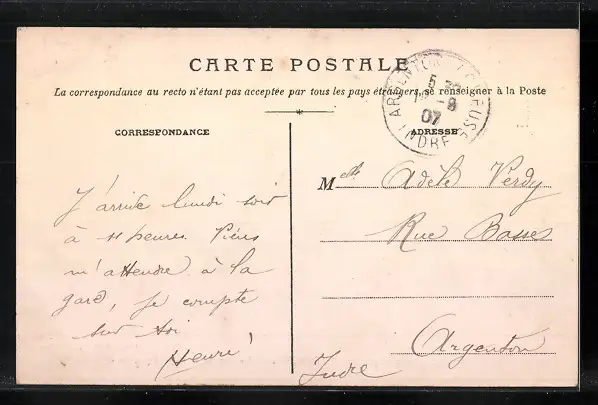 CARTE POSTALE
La correspondance au recto n'étant pas acceptée par tous les pays étrangers, se renseigner à la Poste
CORRESPONDANCE
J'arrive lundi soir
à 11 heures. Viens
m'attendre à la
gare, je compte
sur toi
Henri!
ARGENTON S CREUSE
5 30
-8
07
INDRE
ADRESSE
Melle Adèle Verdy
Rue Basses
Argenton
Indre